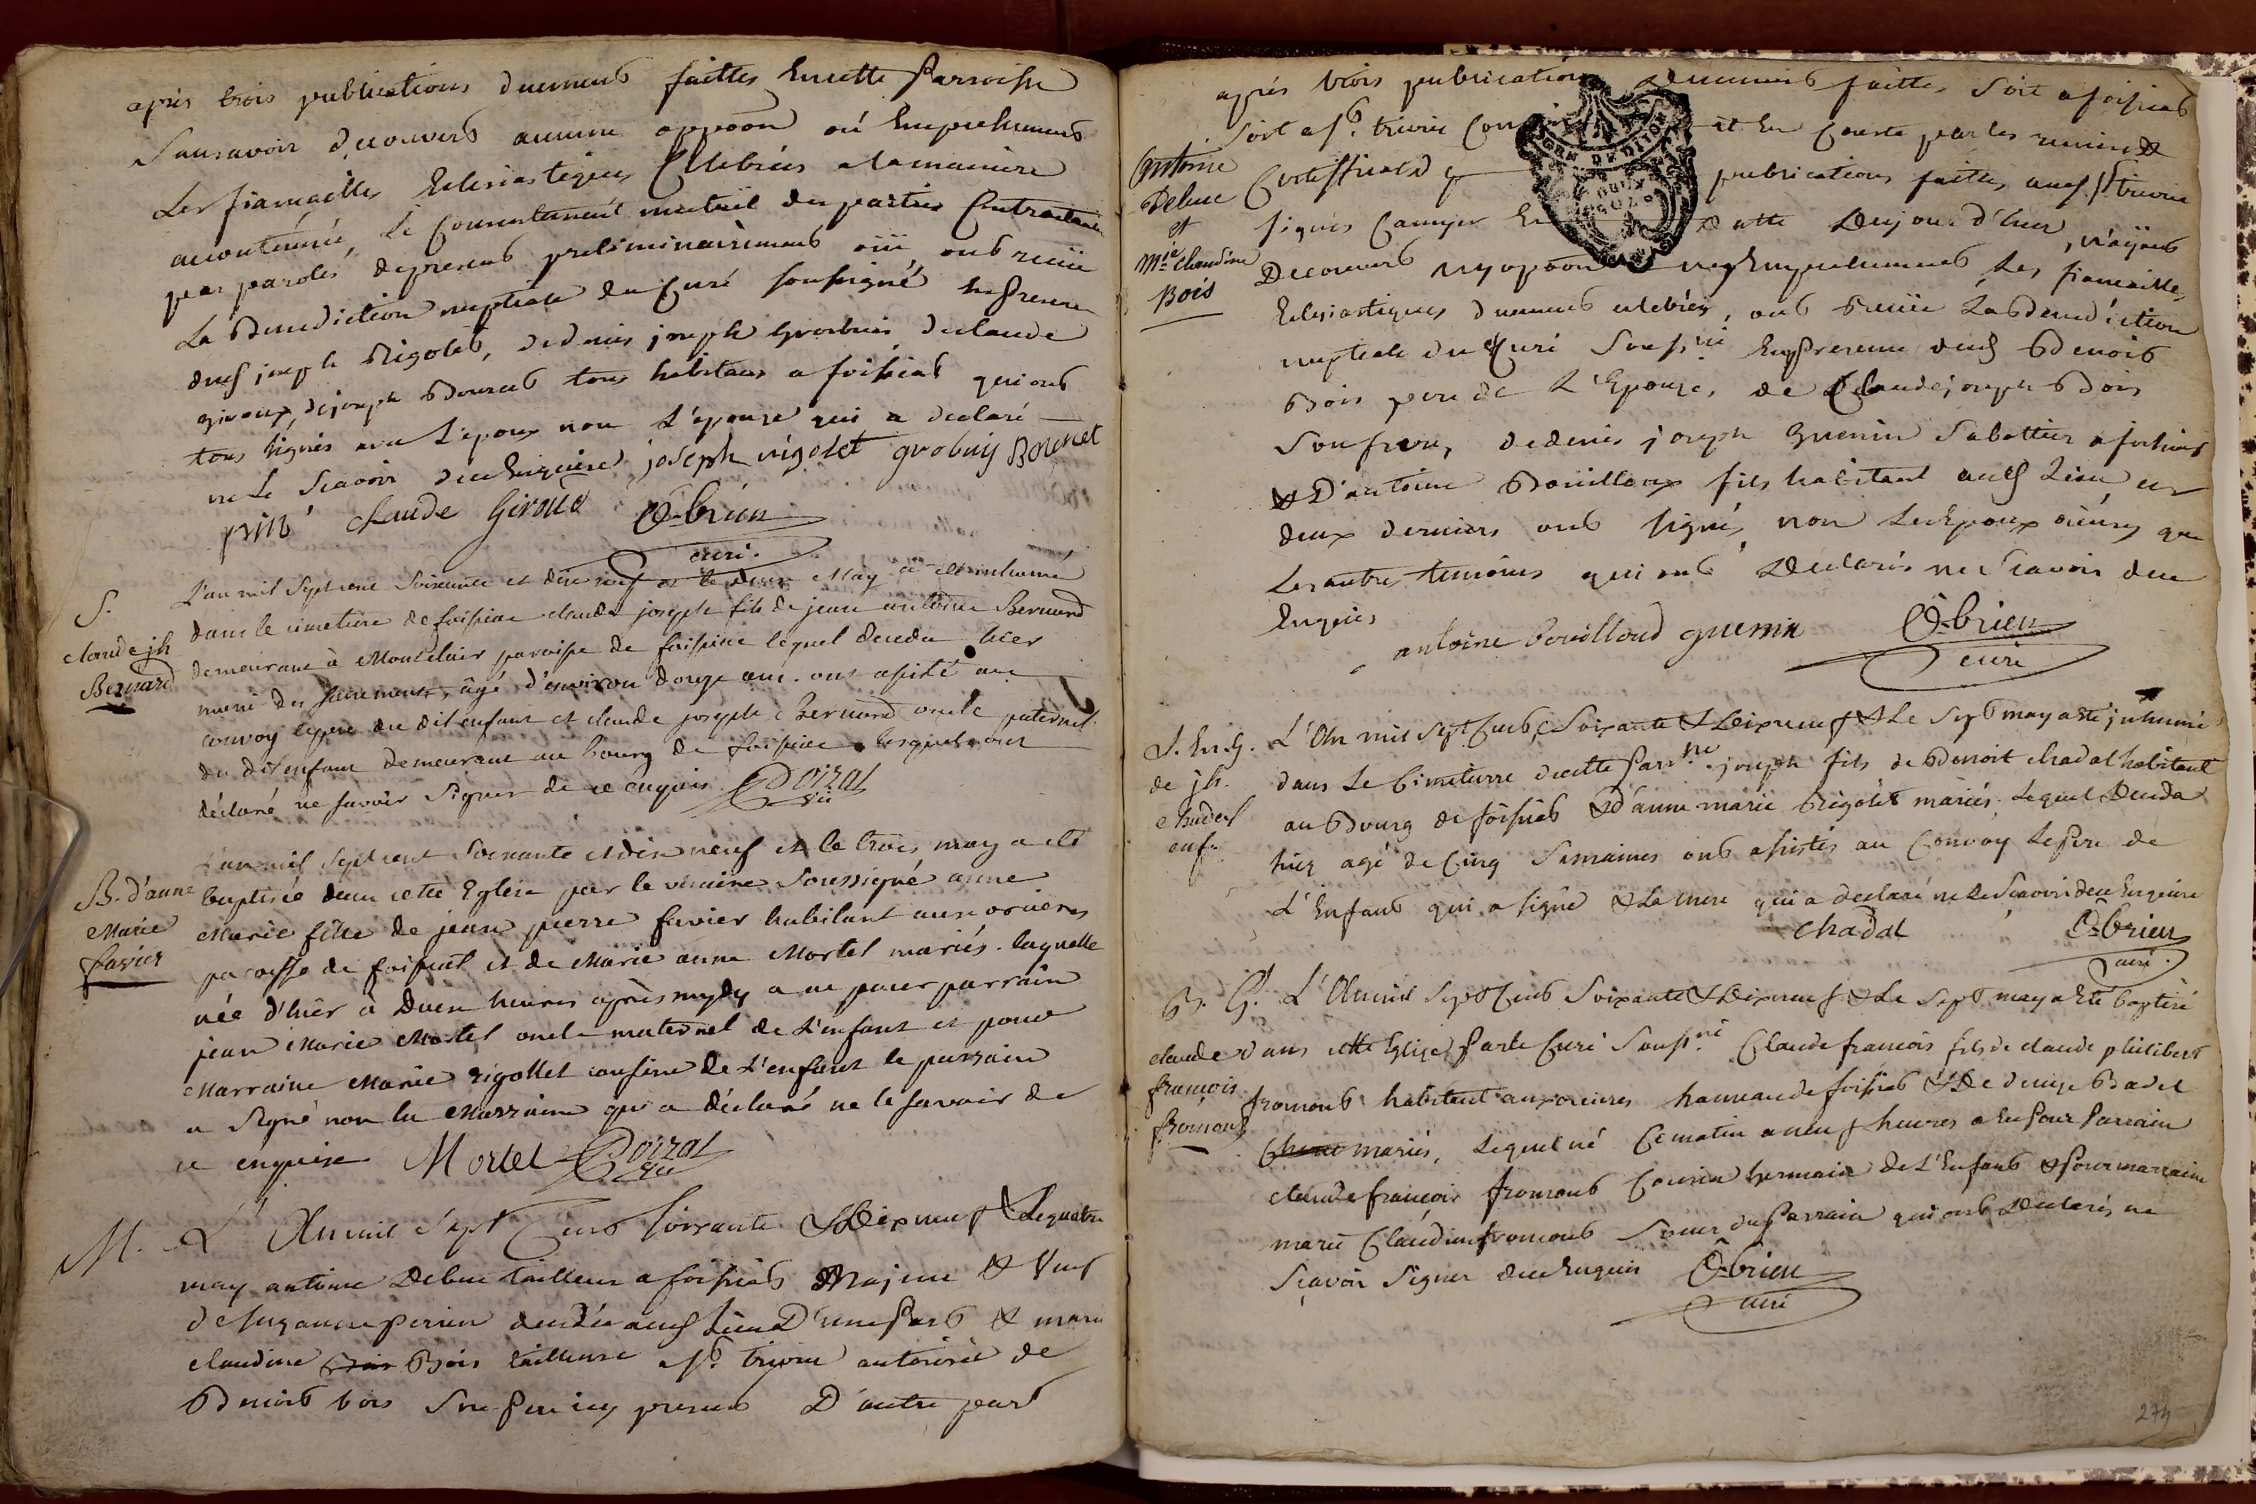 après trois publications duement faittes en cette Parroisse
sans avoir decouvert aucune oppoon où Empechement
Les fiancailles Eclesiastiques Célébrées a la manière
accoutumée, le Consentement mutuël des parties Contractantes
par paroles depresent preliminairement oüi, ont reçüe
La Benediction nuptiale du Curé soussigné En presence
dud joseph Rigolet, de denis joseph Grosbuis de claude
giroux, de joseph Bournet tous habitans a foissiat qui ont
tous signés avec L'époux non L'épouse qui a declaré
ne Le Scavoir duement Enquise joseph rigolet grobuis Bornet
claude Giroud O-brien
curé.
S.
claude jh
Bernard
L'an mil sept cent soixante et dix neuf et le deux May a été inhumé
dans le cimetiere de foissiat claude joseph fils de jean antoine Bernard
demeurant à Montclair paroisse de foissiat lequel deceda hier
muni des sacremens, âgé d'environ douze ans. ont assisté au
convoy le pere du dit enfant et claude joseph Bernard oncle paternel
du dit enfant demeurant au bourg de foissiat lesquels ont
déclaré ne savoir signer de ce enquis Poizat
vic
B. d'anne
Marie
favier
L'an mil sept cent soixante et dix neuf et le trois may a été
baptisée dans cette Eglise par le vicaire soussigné anne
Marie fille de jean pierre favier habitant aux orcières
paroisse de foissiat et de Marie anne Mortel mariés. laquelle
née d'hier à deux heures après mydy a eu pour parrain
jean Marie Mortel oncle maternel de L'enfant et pour
Marraine Marie rigollet cousine de L'enfant le parrain
a signé non la Marraine qui a déclaré ne le savoir de
ce enquise Mortel Poizat
vic
M. L'An mil Sept Cent soixante & Dix neuf & Le quatre
may antoine Deluc tailleur a foissiat Majeur & Veuf
de suzanne perrin decedée aud Lieu D'une Part & marie
claudine Bois tailleuse a st. trivier autorisée de
Benoit bois Son Pere icy present D'autre part
Antoine
Deluc
et
Mie claudine
Bois
après trois publications duement faittes Soit a foissiat
Soit a st. trivier et En Conste par les remise &
Certifficat d publications faittes aud st. trivier
signés En datte du jour d'hier, n'ayant
Decouvert ny opoon ny Empechement Les fiancailles
Eclesiastiques duement celebrées, ont recüe La Benediction
nuptiale du Curé Souss.né En presence dud Benoit
Bois pere de L'Epouse, de Claude joseph Bois
Son frere, de denis joseph Guenin Sabottier a foissiat
& D'antoine Boüilloux fils habitant aud Lieu ces
deux derniers ont signés non Les Epoux niéusq que
Les autres temoins qui ont déclarés ne Scavoir due
Enquis
antoine bouilloud guenin O-brien
curé
S. En G.
de jh.
chadal
enf.
L'An mil sept Cent Soixante & Dix neuf & Le Sept may a été inhumé
dans Le Cimetierre de cette Parr.sse joseph fils de Benoit chadal habitant
au Bourg de foissiat & d'anne marie Rigolet mariés. Lequel Deceda
hier agé de Cinq Semaines ont assistés au Convoy Le Pere de
L'Enfant qui a signé & La mere qui a declaré ne Le Scavoir due Enquise
chadal O-brien
curé.
B. G.
claude
francois
fromont
L'An mil Sept Cent Soixante & Dix neuf & Le Sept may a Eté baptisé
dans cette Eglise Par Le Curé Souss.né Claude francois fils de claude philibert
fromont habitant aux orcieres hameau de foissiat & De denise Badel
mariés, Lequel né Ce matin a neuf heures a Eu Pour Parrain
claude francois fromont Cousin Germain de L'Enfant & Pour marraine
marie Claudine fromont Soeur du Parrain qui ont déclarés ne
Scavoir Signer due Enquis O-brien
curé
274